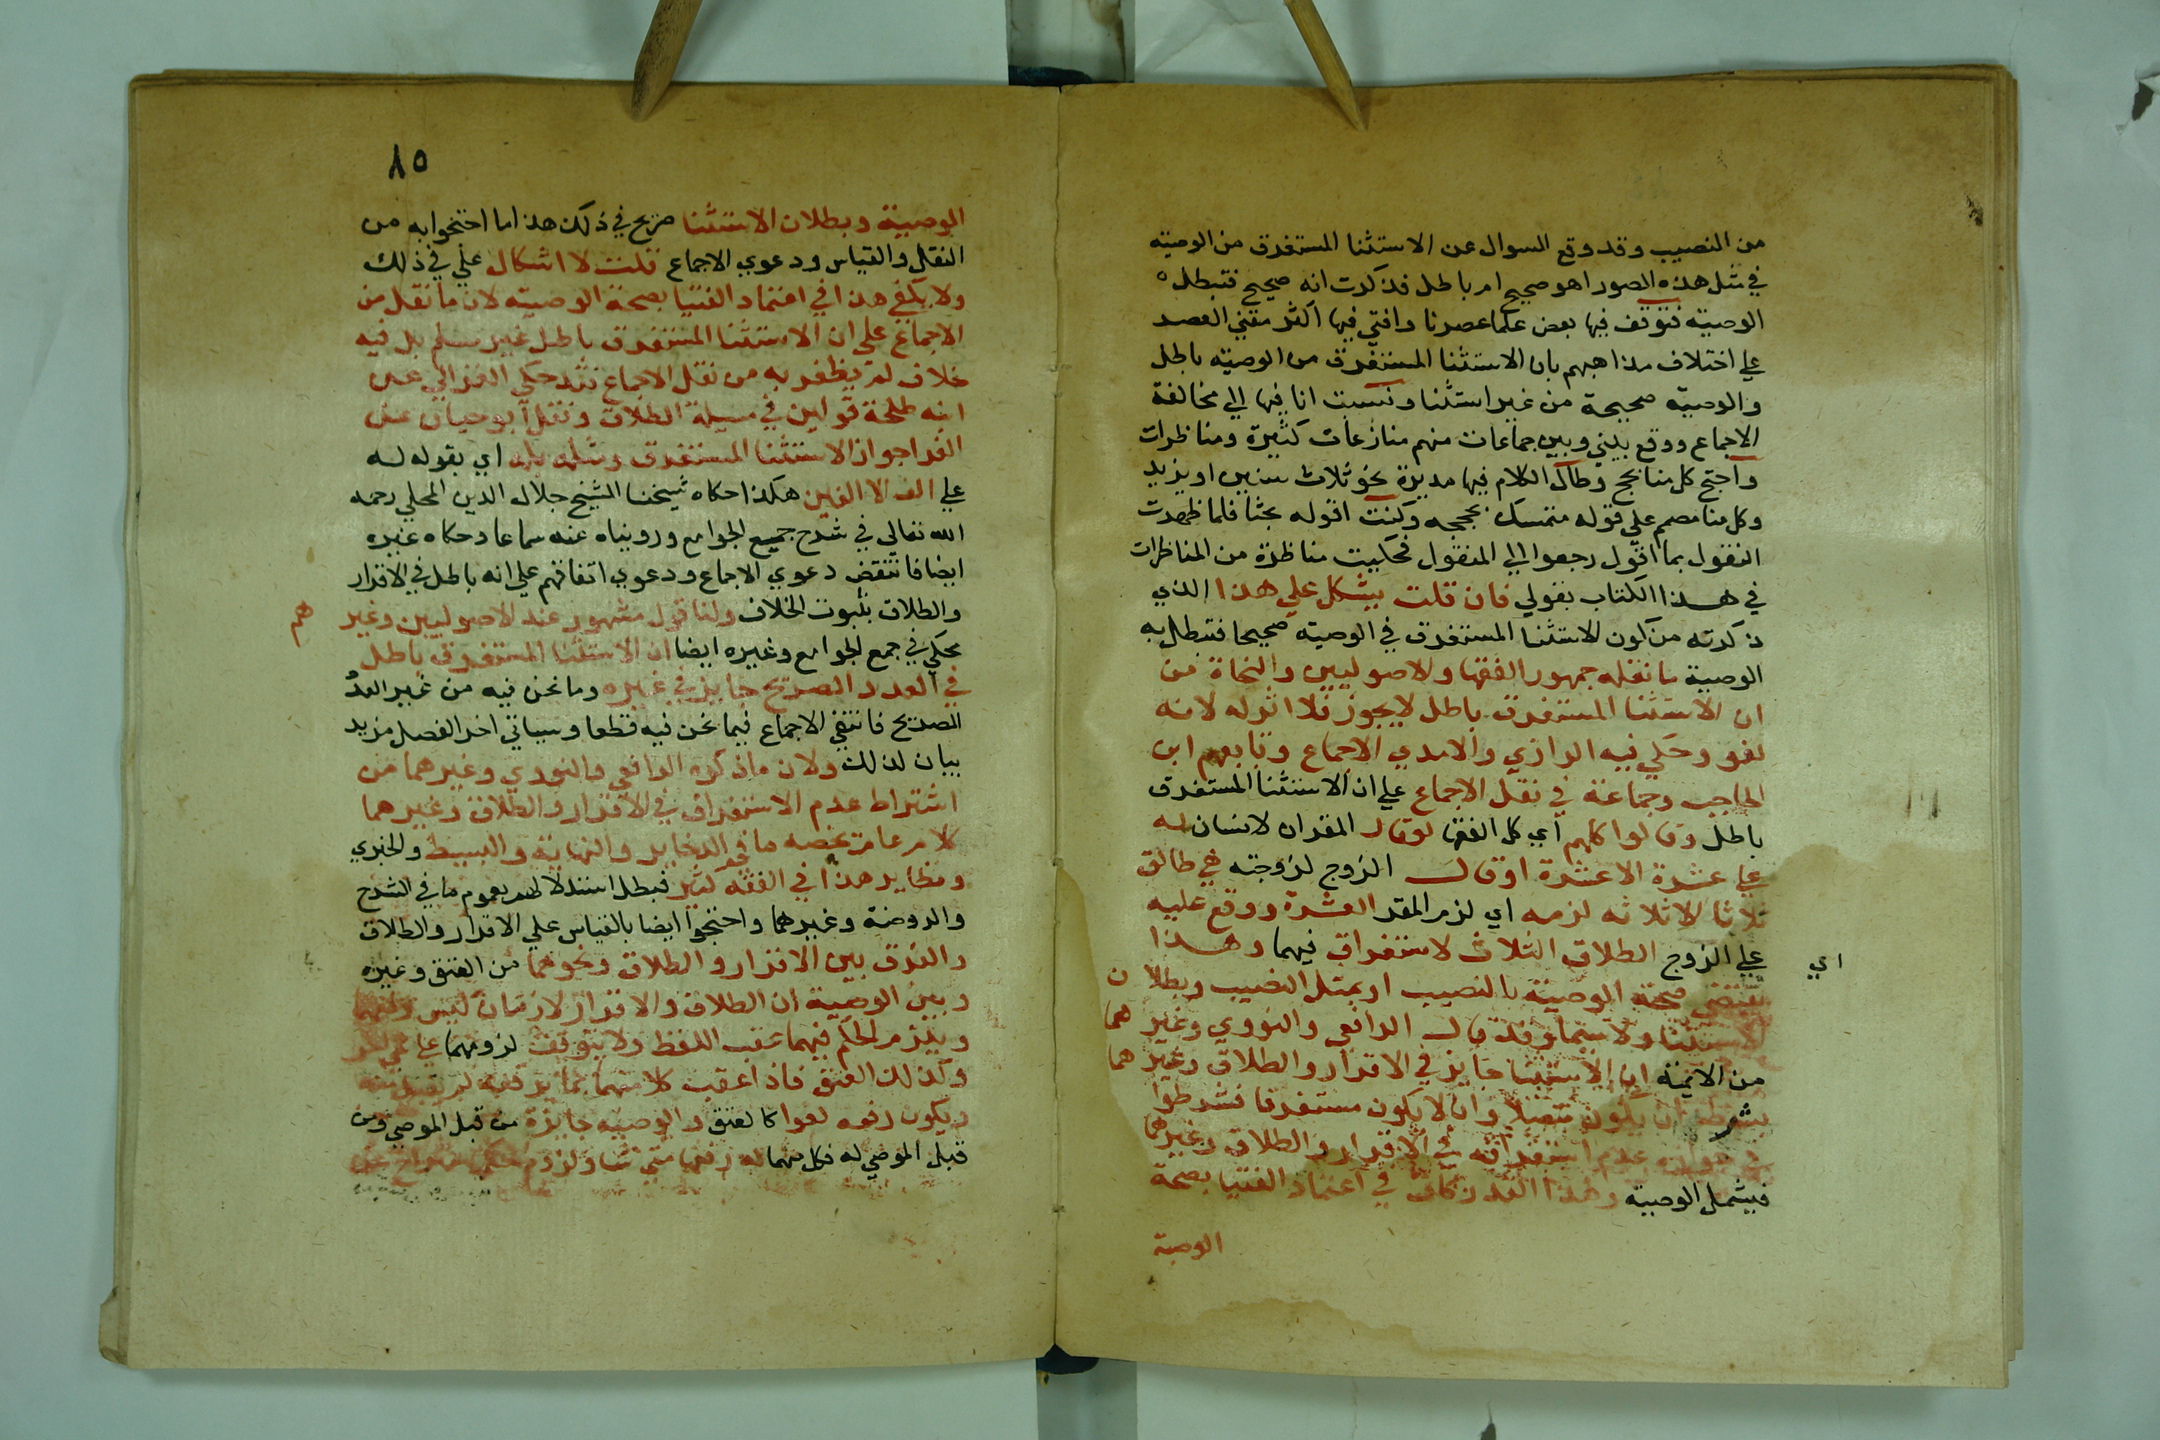 من النصيب وقد وقع السوال عن الاستثنا المستغرق من الوصيه
في مثل هذه الصور اهو صحيح ام باطل فذكرت انه صحيح فتبطل ه
الوصيه فتوقف فيها بعض علما عصرنا وافتي فيها اكثر مفتي العصر
علي اختلاف مذاهبهم بان الاستثنا المستغرق من الوصيه باطل
والوصيه صحيحة من غير استثنا ونسبت انا فيها الي مخالفة
الاجماع ووقع بيني وبين جماعات منهم منازعات كثيرة ومناظرات
واحتج كل منا بحجج وطال الكلام فيها مديدة نحو ثلاث سنين او يزيد
وكل منا مصمم علي قوله متمسك بحججه وكنت اقوله بحثا فلما ظهرت
النقول بما اقول رجعوا الي المنقول فحكيت مناظرة من المناظرات
في هذا الكتاب بقولي فان قلت يشكل علي هذا الذي
ذكرته من كون الاستثنا المستغرق في الوصيه صحيحا فتبطل به
الوصية ما نقله جمهور الفقها والاصوليين والنحاة من
ان الاستثنا المستغرق باطل لا يجوز فلا اثر له لانه
لغو وحكي فيه الرازي والامدي الاجماع وتابعهم ابن
الحاجب وجماعة في نقل الاجماع علي ان الاستثنا المستغرق
باطل وقالوا كلهم اي كل الفقها لو قال المقر ان لانسان له
علي عشرة الا عشرة او قال الزوج لزوجته هي طالق
ثلاثا الا ثلاثه لزمه اي لزم المقر العشرة ووقع عليه
اي
علي الزوج الطلاق الثلاث لاستغراق فيهما وهذا
يقتضي صحة الوصية بالنصيب او بمثل النصيب وبطلان
الاستثنا ولا سيما وقد قال الرافعي والنووي وغيرهما
من الايمة ان الاستثنا جايز في الاقرار والطلاق وغيرهما
بشرط ان يكون متصلا وان لا يكون مستغرقا فشرطوا
عدم استغراقه في الاقرار والطلاق وغيرهما
فيشمل الوصية وهذا القدر كاف في اعتماد الفتيا بصحة
الوصية
٨٥
الوصية وبطلان الاستثنا صريح في ذلك هذا ما احتجوا به من
النقل والقياس ودعوي الاجماع قلت لا اشكال علي في ذلك
ولا يكفي هذا في اعتماد الفتيا بصحة الوصيه لان ما نقل من
الاجماع علي ان الاستثنا المستغرق باطل غير مسلم بل فيه
خلاف لم يظفر به من نقل الاجماع فقد حكي القرافي عن
ابن طلحة قولين في مسيلة الطلاق ونقل ابو حيان عن
الفرا جواز الاستثنا المستغرق ومثله بله اي بقوله له
علي الف الا الفين هكذا حكاه شيخنا الشيخ جلال الدين المحلي رحمه
الله تعالي في شرح جميع الجوامع ورويناه عنه سماعا وحكاه غيره
ايضا فانتقض دعوي الاجماع ودعوي اتفاقهم علي انه باطل في الاقرار
والطلاق بثبوت الخلاف ولنا قول مشهور عند الاصوليين وغير
هم
محكي في جمع الجوامع وغيره ايضا ان الاستثنا المستغرق باطل
في العدد الصريح جايز في غيره وما نحن فيه من غير العدد
الصريح فانتفي الاجماع فيما نحن فيه قطعا وسياتي اخر الفصل مزيد
بيان لذلك ولان ما ذكره الرافعي والنووي وغيرهما من
اشتراط عدم الاستغراق في الاقرار والطلاق وغيرهما
كلام عام تخصه ما في الدخاير والنهاية والبسيط والخبري
ونظاير هذا في الفقه كثير فبطل استدلالهم بعموم ما في الشرح
والروضة وغيرهما واحتجوا ايضا بالقياس علي الاقرار والطلاق
والفرق بين الاقرار والطلاق ونحوهما من العتق وغيره
وبين الوصية ان الطلاق والاقرار لازمان ليس
ويلزم الحكم فيهما عقب اللفظ ولا يتوقف لزومهما علي
وكذلك العتق فاذا عقب كلا منهما بما يرفعه لم يقبل منه
ويكون رفعه لغوا كالعتق والوصيه جايزة من قبل الموصي ومن
قبل الموصي له فكل منهما له رفعها متي شا ولزوم